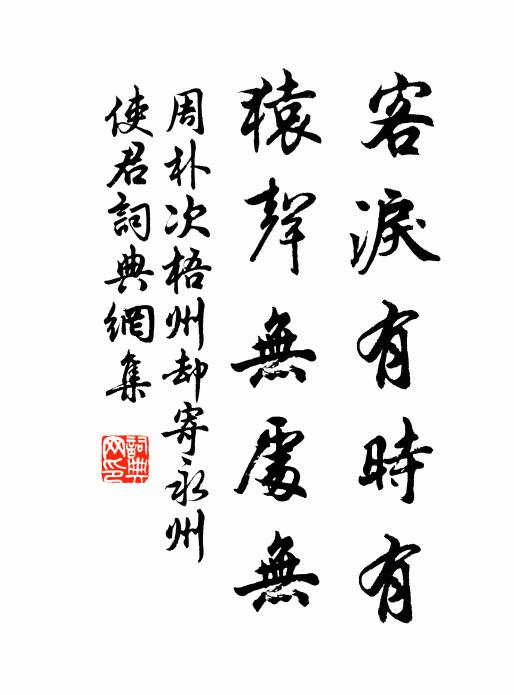 客淚有時有
猿聲無處無
周朴次梧州却寄永州
使君詞典網集
詞典
网印